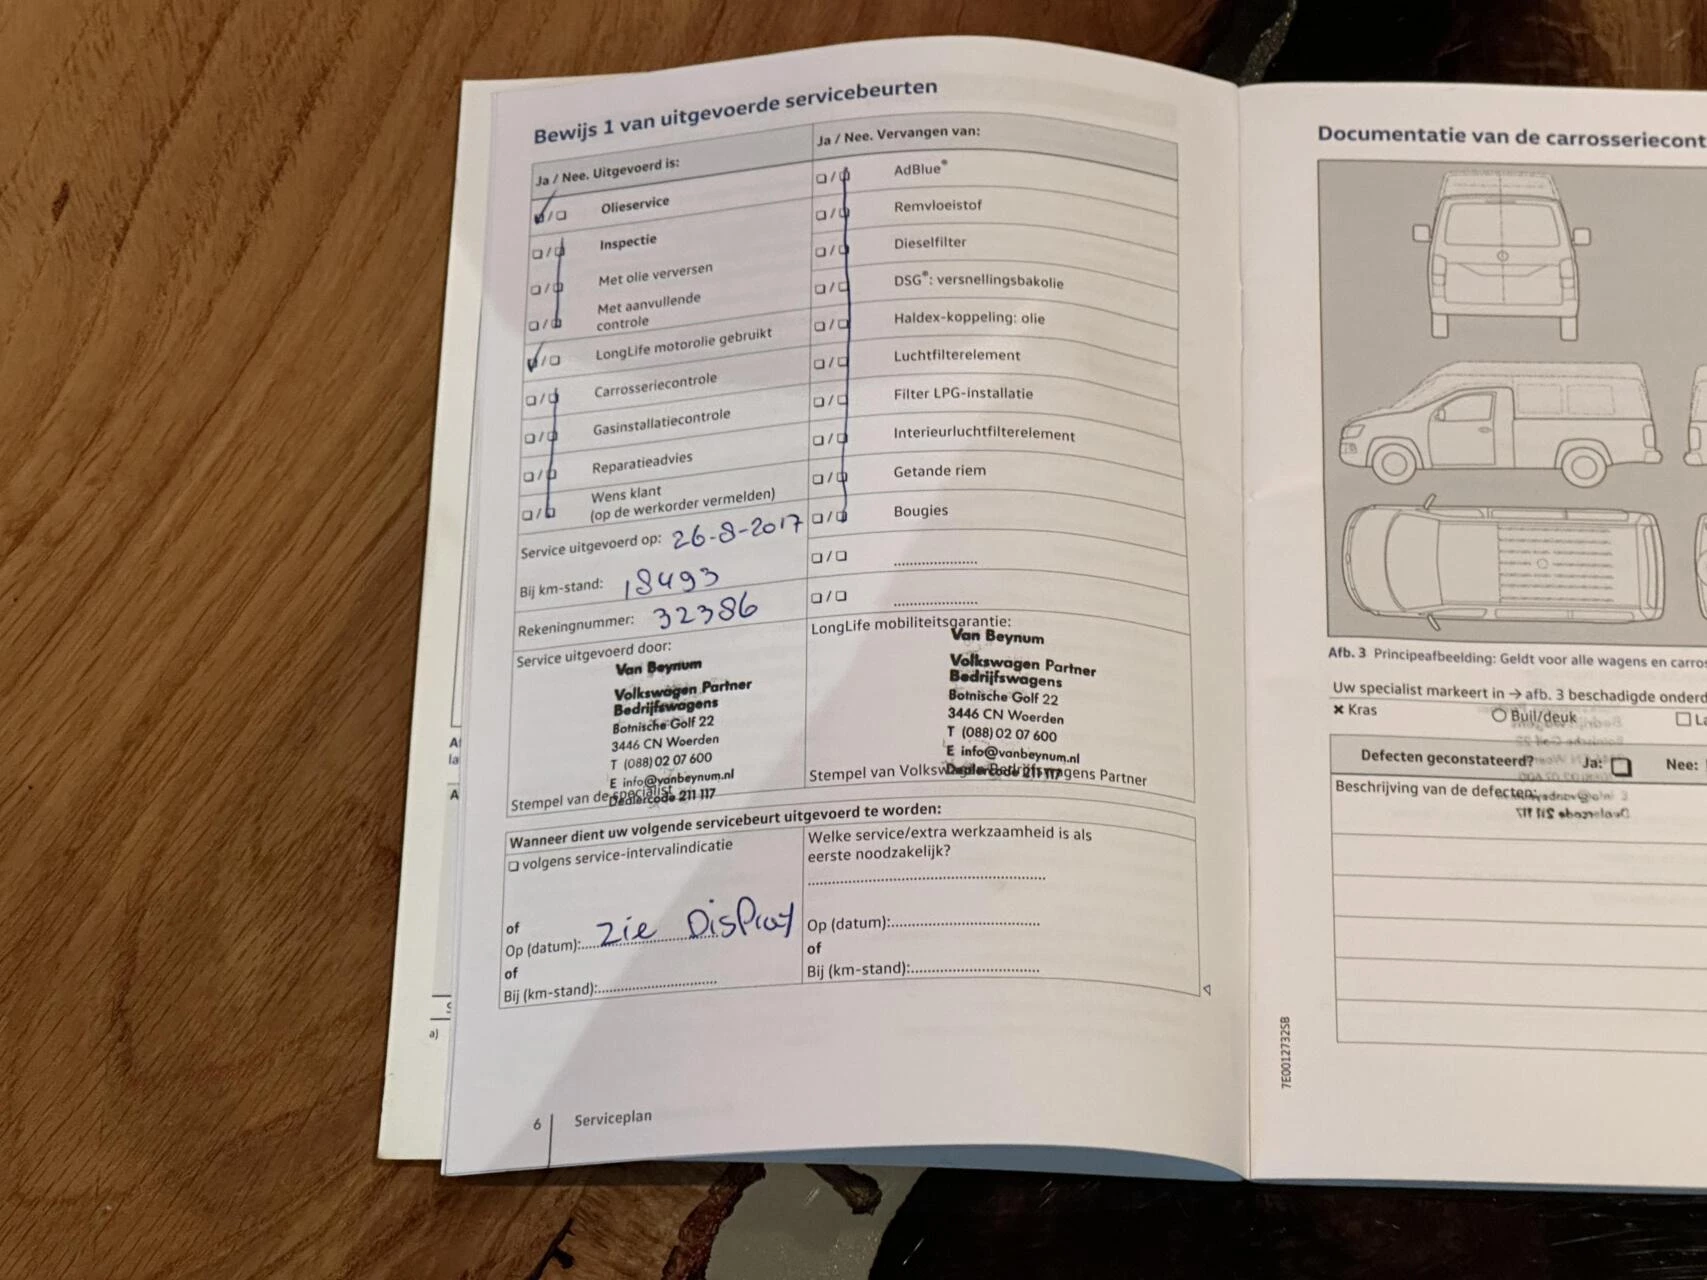 Bewijs 1 van uitgevoerde servicebeurten
Ja / Nee. Uitgevoerd is:
Olieservice
Inspectie
Met olie verversen
Met aanvullende
controle
LongLife motorolie gebruikt
Carrosseriecontrole
Gasinstallatiecontrole
Reparatieadvies
Wens klant
(op de werkorder vermelden)
Service uitgevoerd op: 26-8-2017
Bij km-stand: 18493
Rekeningnummer: 32386
Service uitgevoerd door:
Van Beynum
Volkswagen Partner
Bedrijfswagens
Botnische Golf 22
3446 CN Woerden
T (088) 02 07 600
E info@vanbeynum.nl
Dealercode 211 117
Stempel van de specialist
Ja / Nee. Vervangen van:
AdBlue®
Remvloeistof
Dieselfilter
DSG®: versnellingsbakolie
Haldex-koppeling: olie
Luchtfilterelement
Filter LPG-installatie
Interieurluchtfilterelement
Getande riem
Bougies
LongLife mobiliteitsgarantie:
Van Beynum
Volkswagen Partner
Bedrijfswagens
Botnische Golf 22
3446 CN Woerden
T (088) 02 07 600
E info@vanbeynum.nl
Dealercode 211 117
Stempel van Volkswagen Bedrijfswagens Partner
Wanneer dient uw volgende servicebeurt uitgevoerd te worden:
volgens service-intervalindicatie
of
Op (datum): zie Display
of
Bij (km-stand):
Welke service/extra werkzaamheid is als
eerste noodzakelijk?
Op (datum):
of
Bij (km-stand):
6 Serviceplan
Documentatie van de carrosseriecont
Afb. 3 Principeafbeelding: Geldt voor alle wagens en carros
Uw specialist markeert in → afb. 3 beschadigde onderd
× Kras
Buil/deuk
La
Defecten geconstateerd? Ja: Nee:
Beschrijving van de defecten:
7E0012732SB
a)